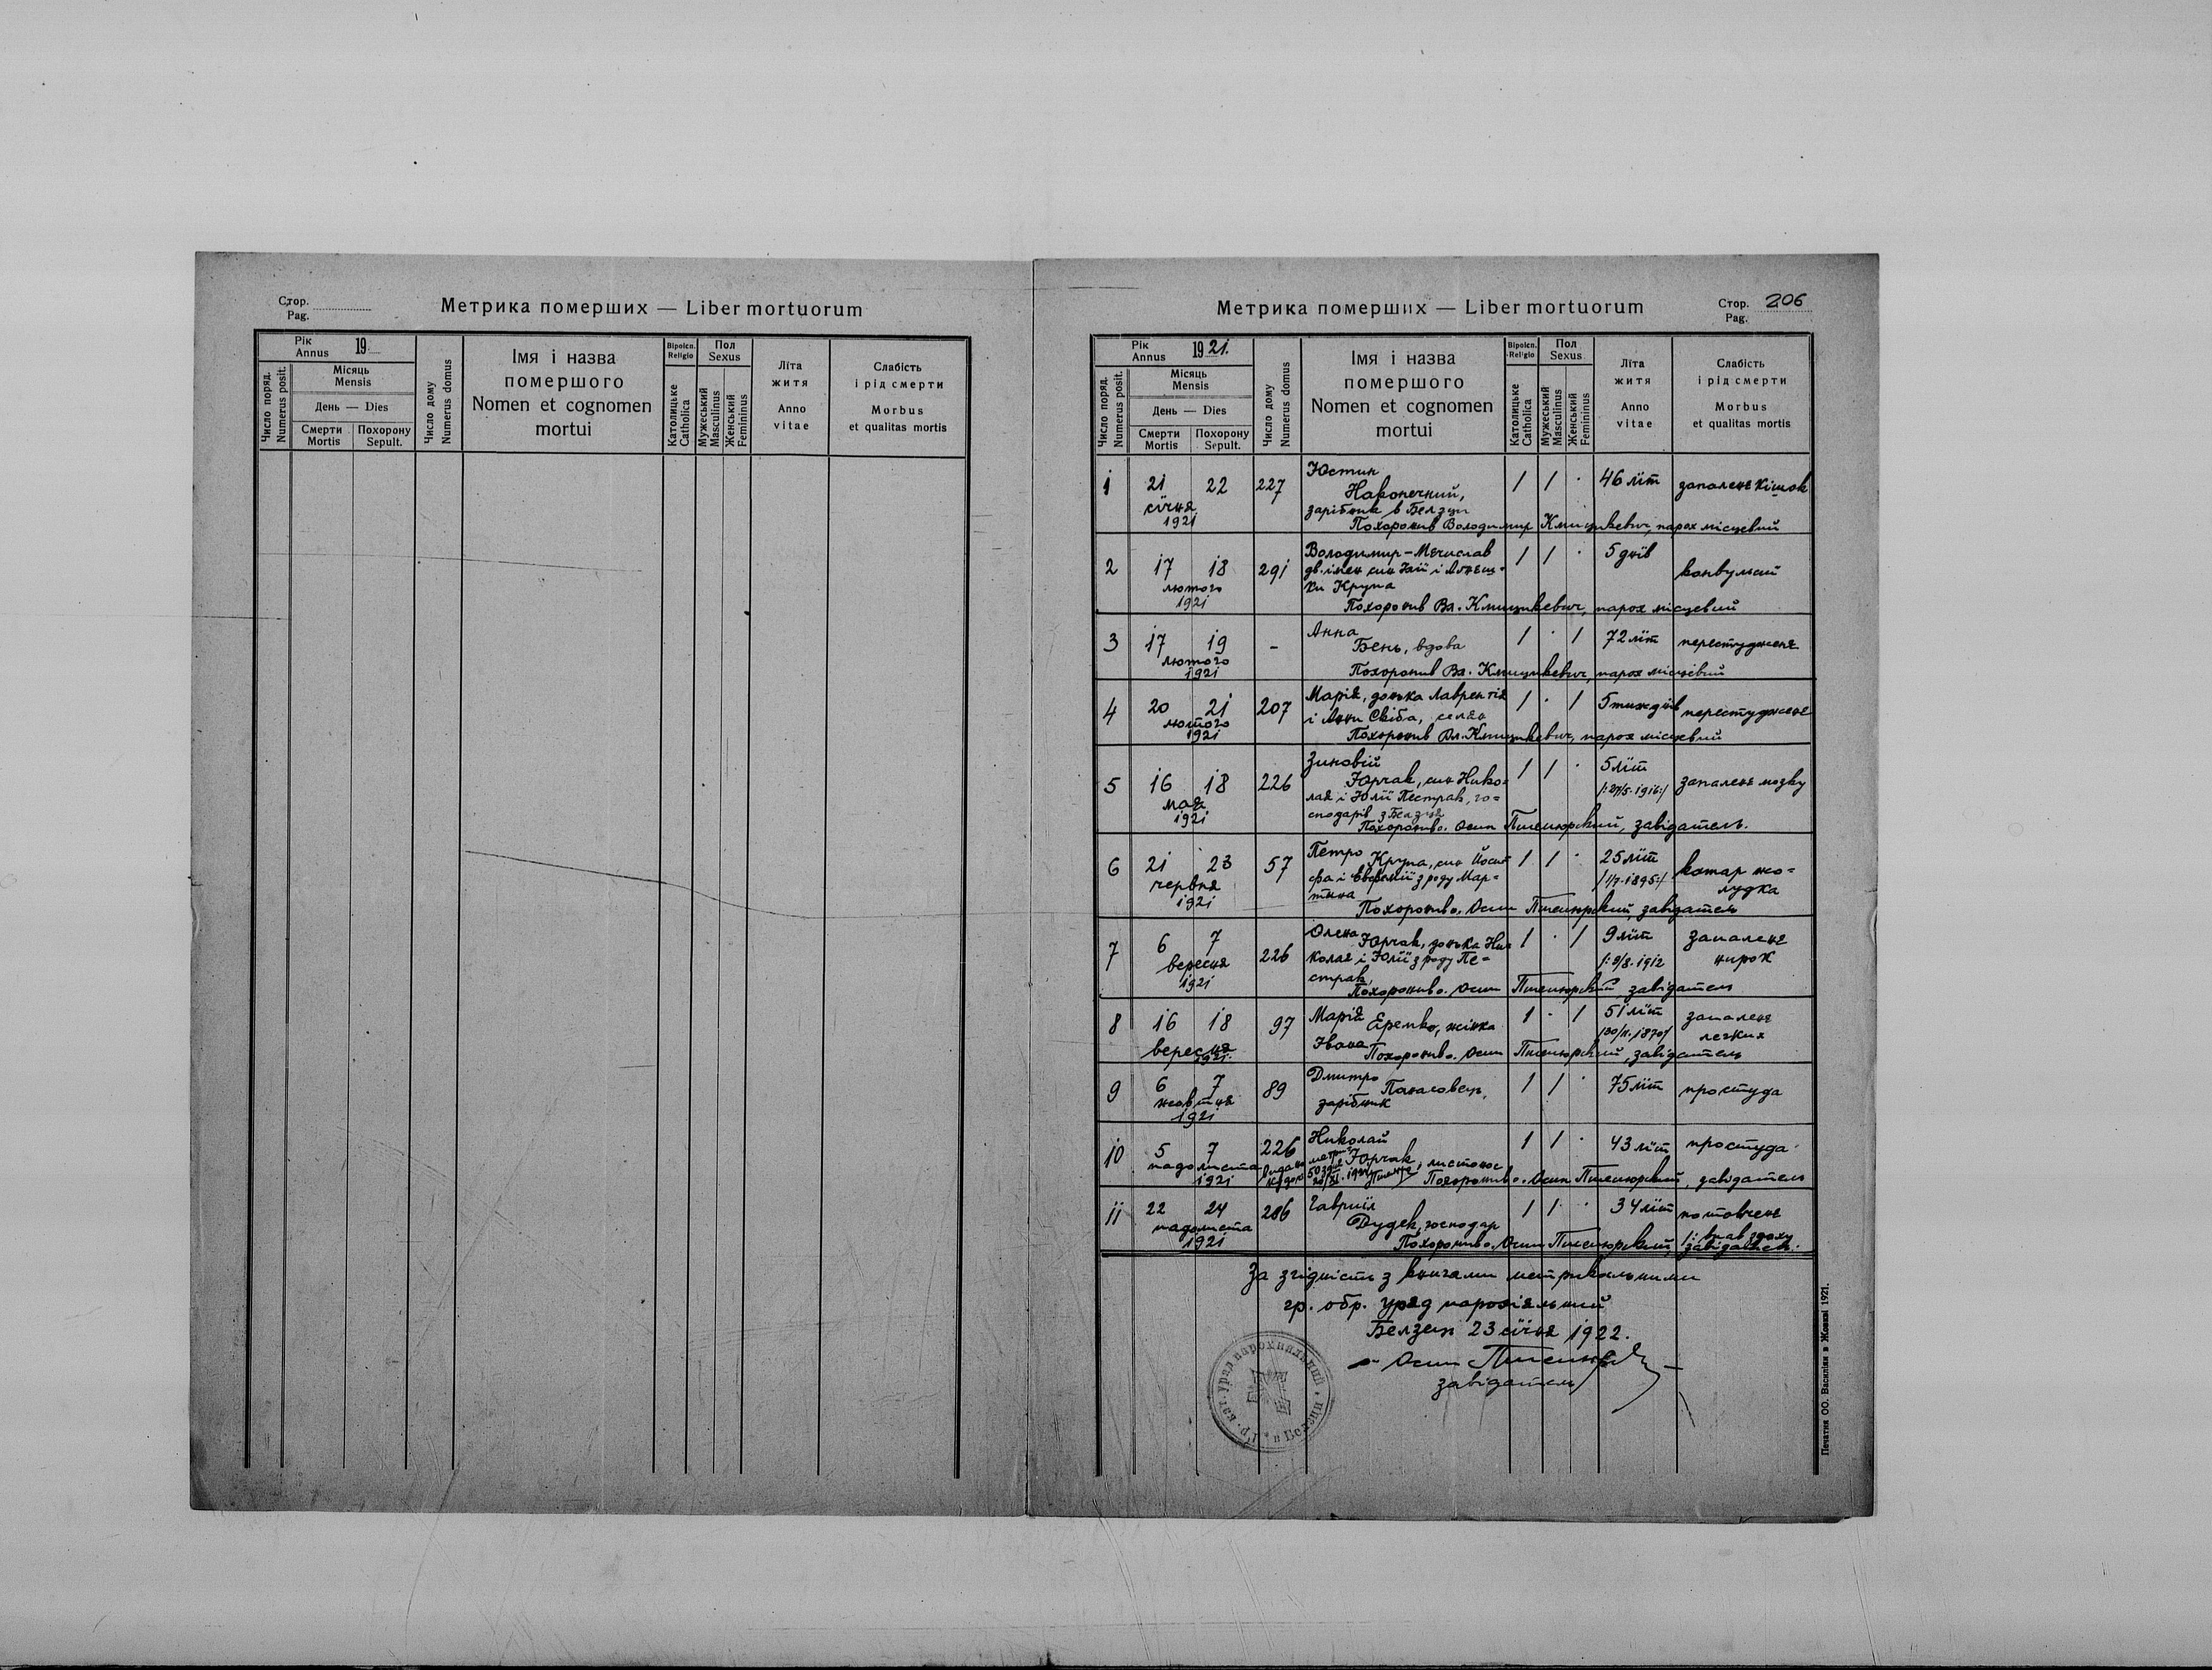 Стор.
Pag.
Метрика померших — Liber mortuorum
Рік
Annus 19
Місяць
Mensis
День — Dies
Смерти
Mortis
Похорону
Sepult.
Число поряд.
Numerus posit.
Число дому
Numerus domus
Імя і назва
помершого
Nomen et cognomen
mortui
Віроісп.
Religio
Католицьке
Catholica
Пол
Sexus
Мужеський
Masculinus
Женський
Femininus
Літа
житя
Anno
vitae
Слабість
і рід смерти
Morbus
et qualitas mortis
Метрика померших — Liber mortuorum
Стор. 206
Pag.
Рік
Annus 1921.
Місяць
Mensis
День — Dies
Смерти
Mortis
Похорону
Sepult.
Число поряд.
Numerus posit.
Число дому
Numerus domus
Імя і назва
помершого
Nomen et cognomen
mortui
Віроісп.
Religio
Католицьке
Catholica
Пол
Sexus
Мужеський
Masculinus
Женський
Femininus
Літа
житя
Anno
vitae
Слабість
і рід смерти
Morbus
et qualitas mortis
Юстин
1 21 22 227 Наконечний, 1 1 · 46 літ запаленє кішок
січня зарібник в Белзци
1921 Похоронив Володимир Кмицикевич, парох місцевий
Володимир-Мечислав 1 1 · 5 днів
2 17 18 291 дв. імен син Юлії і Агнєш-
ки Крупа конвульзиї
лютого
1921 Похоронив Вл. Кмицикевич, парох місцевий
Анна
3 17 19 - Бень, вдова 1 · 1 72 літ перестудженє
лютого
1921 Похоронив Вл. Кмицикевич, парох місцевий
Марія, донька Лаврентія
4 20 21 207 і Анни Свіба, селян 1 · 1 5 тиждній перестудженє
лютого
1921 Похоронив Вл. Кмицикевич, парох місцевий
Зиновій
5 16 18 226 Юрчак, син Нико- 1 1 · 5 літ запаленє мозку
лая і Юлії Пестрак, го- /:27/5.1916:/
мая сподарів з Белзця
1921 Похоронив о. Осип завідатель.
Петро
6 21 23 57 Крупа, син Йоси- 1 1 · 25 літ катар жо-
фа і Евфемії з роду Мар- /1/7.1895:/ лудка
червня тина
1921 Похоронив о. Осип завідатель
Олена
7 6 7 226 Юрчак, донька Ни- 1 · 1 9 літ запаленє
вересня колая і Юлії з роду Пе- /:2/8.1912 нирок
страк
1921 Похоронив о. Осип завідатель
8 16 18 97 Марія Еремко, жінка 1 · 1 51 літ запаленє
Івана легких
вересня
1921. Похоронив о. Осип завідатель
9 6 7 89 Дмитро Панасовец, 1 1 · 75 літ простуда
жовтня зарібник
1921
Николай
10 5 7 226 Юрчак, листонос 1 1 · 43 літ простуда
падолиста
1921 Похоронив о. Осип завідатель
11 22 24 286 Гавриїл 1 1 · 34 літ потовченє
Дудек, господар
падолиста
1921 Похоронив о. Осип завідатель.
За згідність з книгами метрикальними
гр. обр. уряд парохіяльний
Белзец 23 січня 1922.
о. Осип
завідатель
Печатня ОО. Василіян в Жовкві 1921.